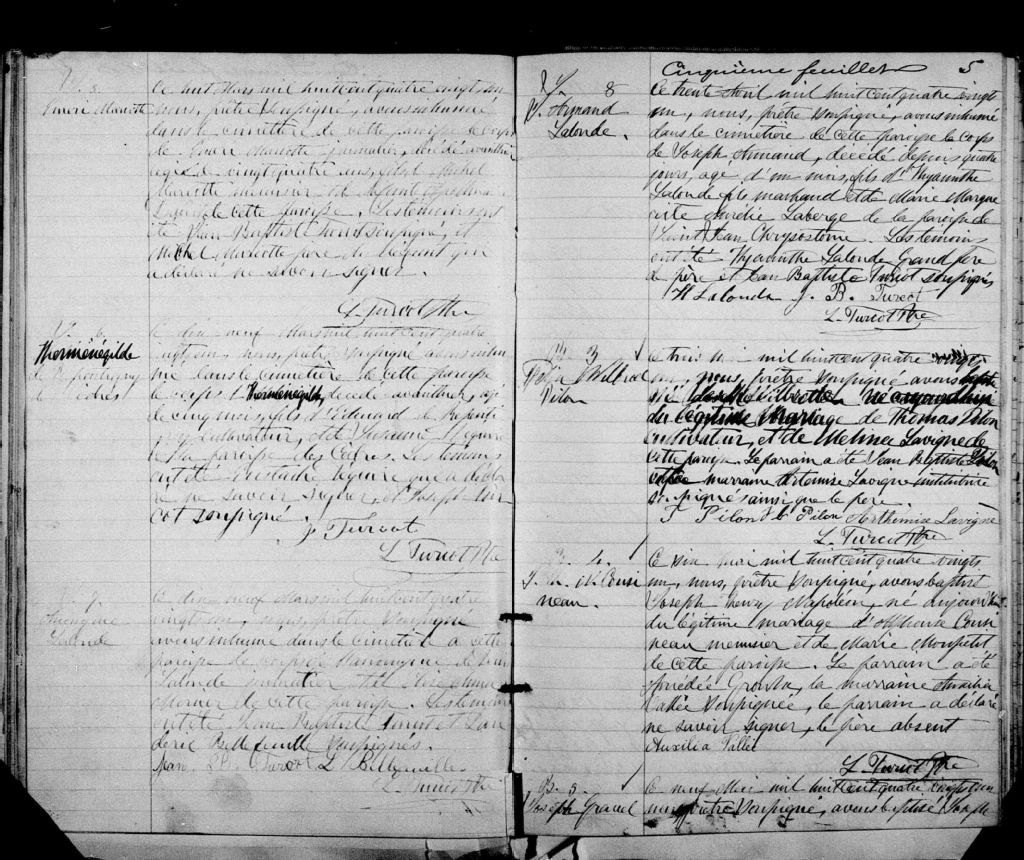 S. 5.
Ce huit Mars mil huit cent quatre vingt un
nous, prêtre soussigné, avons inhumé
dans le cimetière de cette paroisse le corps
de Marcotte journalier, décédé avant hier
agé de vingt quatre ans, fils de Michel
Marcotte menuisier et de
de cette paroisse. Les temoins ont
été Jean Baptiste soussigné, et
Michel Marcotte père du défunt qui
a déclaré ne savoir signer.
L. Turcot Ptre
S. 6.
Hermenégilde
de Repentigny
Cèdres
Ce dix neuf Mars mil huit cent quatre
vingt un, nous, prêtre soussigné avons inhu
mé dans le cimetière de cette paroisse
le corps d'Hermenégilde, décédé avant hier, agé
de cinq mois, fils d'Edouard de Repenti
gny cultivateur, et de Suzanne Séguin
de la paroisse des Cèdres. Les temoins
ont été Eustache Séguin qui a décla
ré ne savoir signer, et Joseph Tur
cot soussigné.
J. Turcot
L. Turcot Ptre
S. 7.
Lalonde
Ce dix neuf Mars mil huit cent quatre
vingt un, nous, prêtre soussigné
avons inhumé dans le cimetière de cette
paroisse le corps de
Lalonde
de cette paroisse. Les temoins
ont été Jean Baptiste Turcot et
Bellefeuille soussignés.
Turcot L. Bellefeuille
L. Turcot Ptre
Cinquième feuillet 5
S. 8
J. Armand
Lalonde.
Ce trente Avril mil huit cent quatre vingt
un, nous, prêtre soussigné, avons inhumé
dans le cimetière de cette paroisse le corps
de Joseph Armand, décédé depuis quatre
jours, agé d'un mois, fils d'Hyacinthe
Lalonde fils marchand et de Marie Margue
rite Aurélie Laberge de la paroisse de
Saint Jean Chrysostome. Les temoins
ont été Hyacinthe Lalonde Grand père
de père et Jean Baptiste Turcot soussignés
H Lalonde J. B. Turcot
L. Turcot Ptre
B. 3
Wilfred
Pilon
Ce trois Mai mil huit cent quatre vingt
un, nous, prêtre soussigné avons baptisé
né aujourd'hui
du légitime Mariage de Thomas Pilon
cultivateur, et de Melina Lavigne de
cette paroisse. Le parrain a été Jean Baptiste Pilon
et la marraine Artemise Lavigne institutrice
soussignés ainsi que le père
T Pilon J. B. Pilon Arthémise Lavigne
L. Turcot Ptre
B. 4.
J. H. N. Cousi
neau.
Ce six Mai mil huit cent quatre vingt
un, nous, prêtre soussigné, avons baptisé
Joseph Henry Napoléon, né aujourd'hui
du légitime mariage d'Alphonse Cousi
neau meunier et de Marie Monpetit
de cette paroisse. Le parrain a été
Amédée Groulx, la marraine Auxilia
Vallée soussignée, le parrain a déclaré
ne savoir signer, le père absent
Auxilia Vallée
L. Turcot Ptre
B. 5.
Joseph Gravel
Ce neuf Mai mil huit cent quatre vingt un
nous prêtre soussigné, avons baptisé Joseph